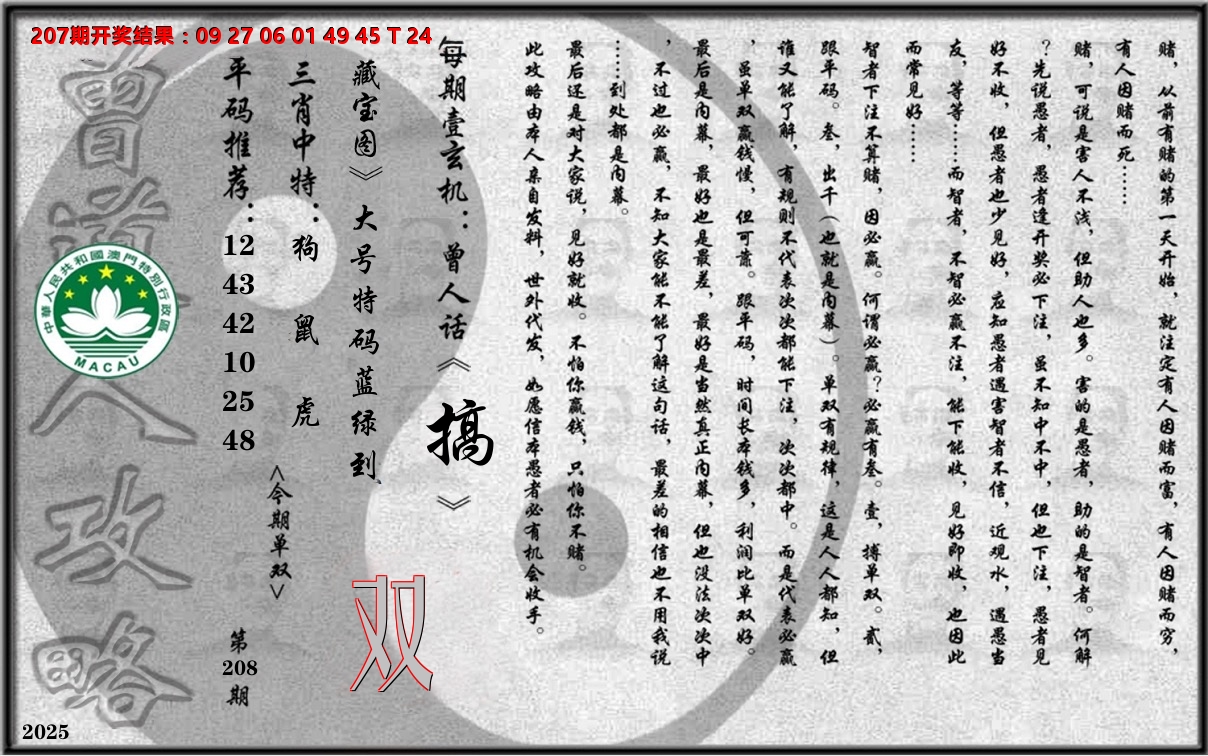 207期开奖结果：09 27 06 01 49 45 T 24
赌，从前有赌的第一天开始，就注定有人因赌而富，有人因赌而穷，
有人因赌而死……
赌，可说是害人不浅，但助人也多。害的是愚者，助的是智者。何解
？先说愚者，愚者逢开奖必下注，虽不知中不中，但也下注，愚者见
好不收，但愚者也少见好，应知愚者遇害智者不信，近观水，遇愚当
友，等等……而智者，不智必赢不注，能下能收，见好即收，也因此
而常见好……
智者下注不算赌，因必赢。何谓必赢？必赢有叁。壹，搏单双。贰，
跟平码。叁，出千（也就是内幕）。单双有规律，这是人人都知，但
谁又能了解，有规则不代表次次都能下注，次次都中。而是代表必赢
，虽单双赢钱慢，但可靠。跟平码，时间长本钱多，利润比单双好。
最后是内幕，最好也是最差，最好是当然真正内幕，但也没法次次中
，不过也必赢，不知大家能不能了解这句话，最差的相信也不用我说
……到处都是内幕。
最后还是对大家说，见好就收。不怕你赢钱，只怕你不赌。
此攻略由本人亲自发料，世外代发，如愿信本愚者必有机会收手。
每期壹玄机：曾人话《搞》
藏宝图》大号特码蓝绿到
双
三肖中特：狗 鼠 虎
<今期单双>
平码推荐：12 43 42 10 25 48
第208期
曾道人攻略
中華人民共和國澳門特別行政區
MACAU
2025